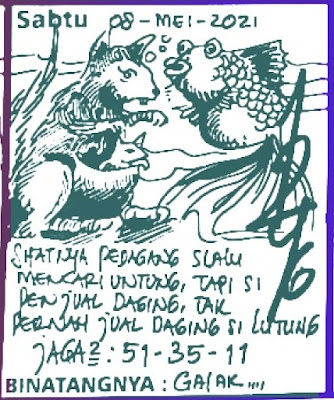 Sabtu 08-MEI-2021
SHATINYA PEDAGANG SLALU
MENCARI UNTUNG, TAPI SI
PENJUAL DAGING, TAK
PERNAH JUAL DAGING SI LUTUNG
JAGA2 : 51-35-11
BINATANGNYA : GALAK....